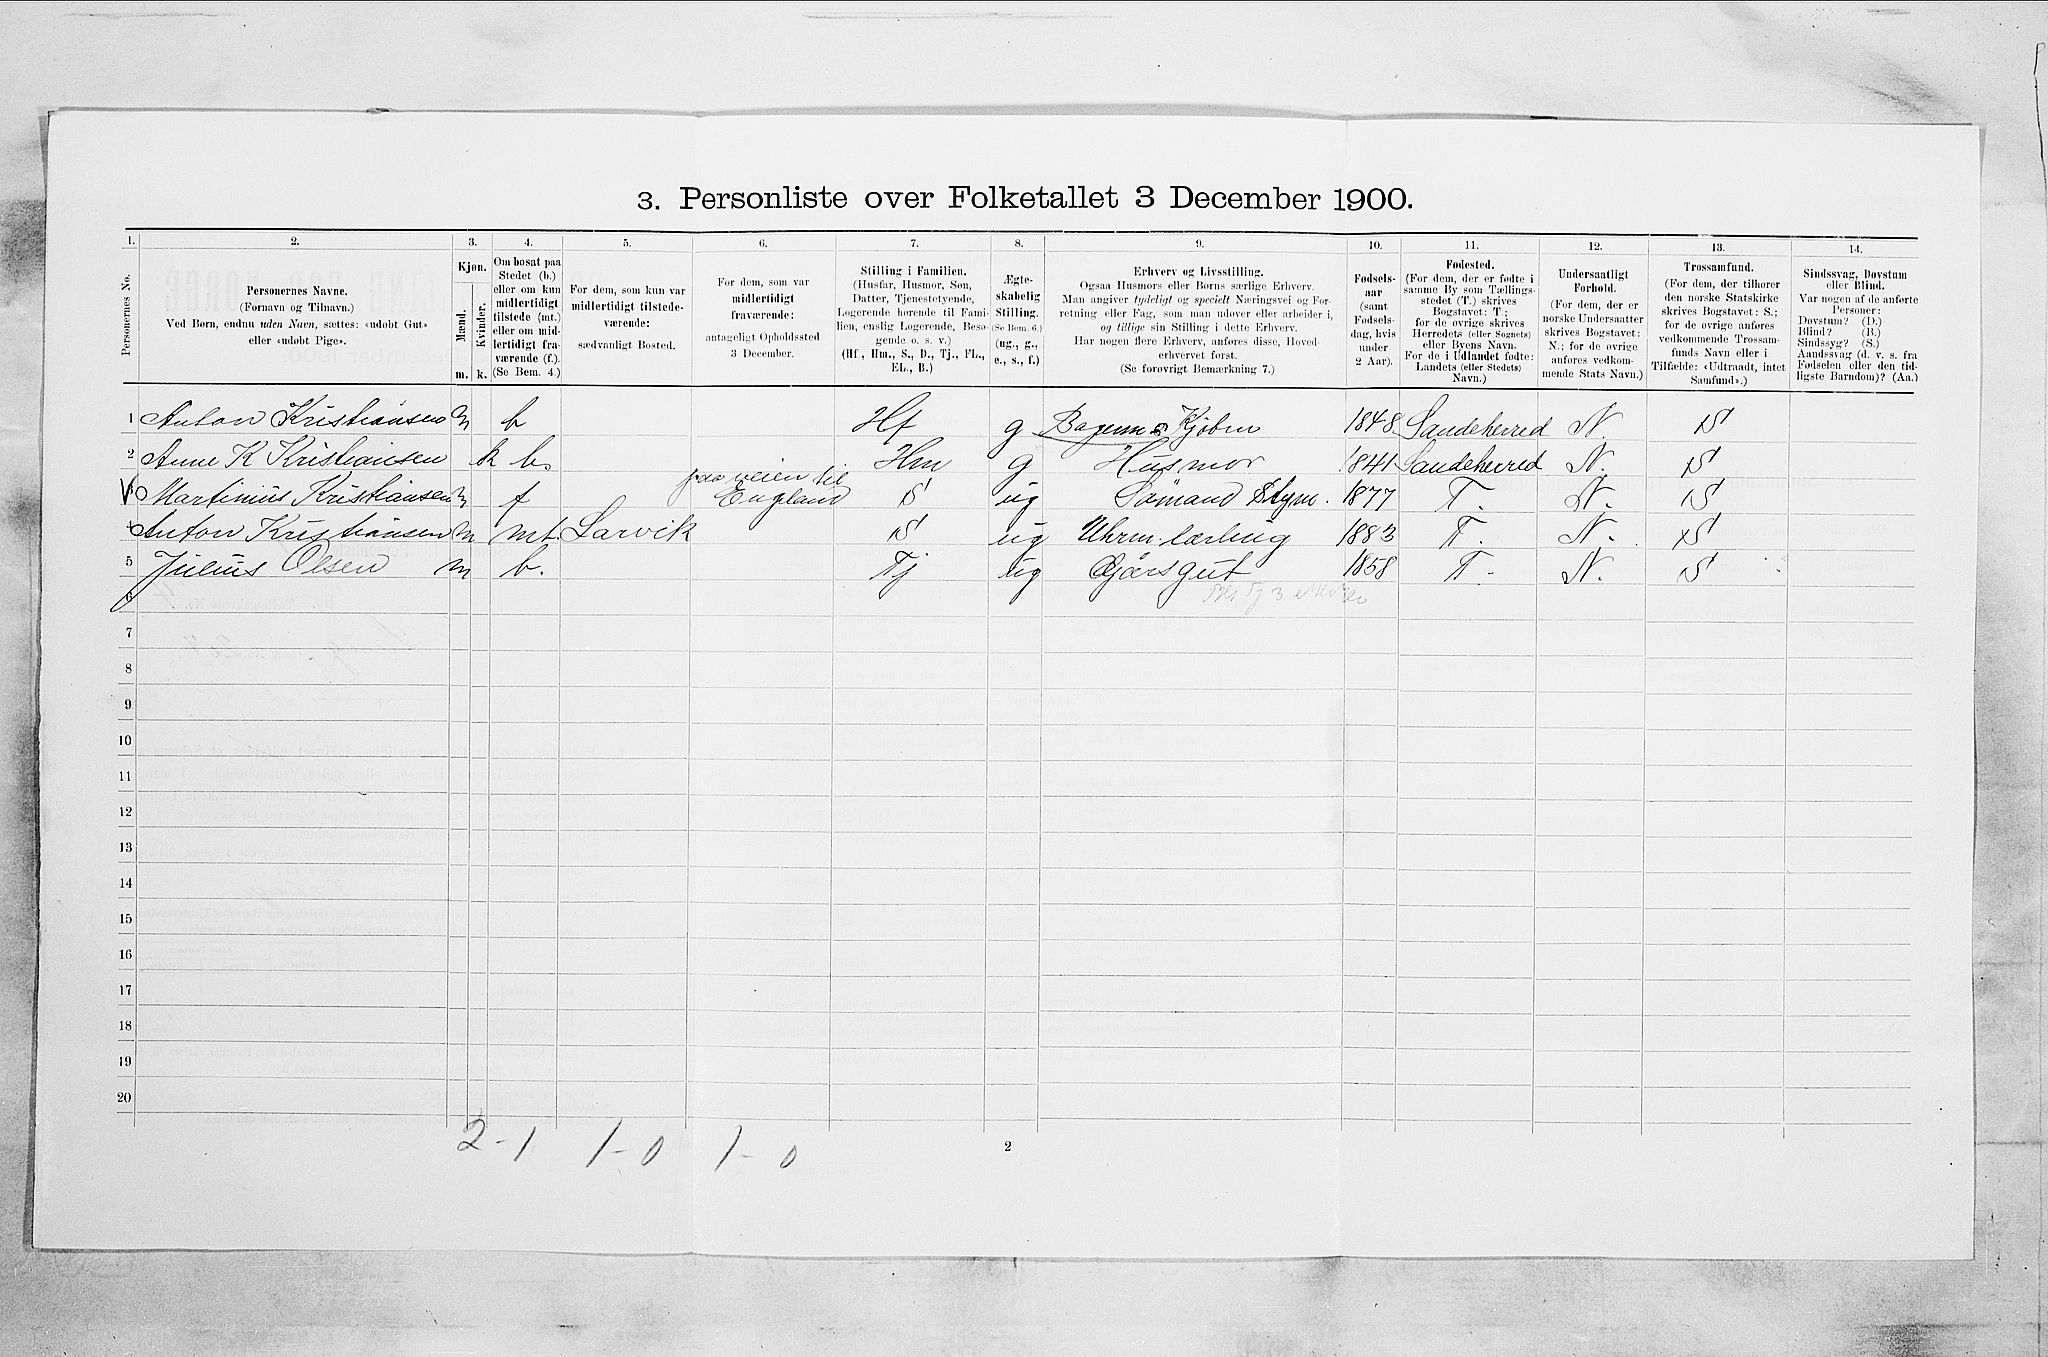 3. Personliste over Folketallet 3 December 1900.
1. 2. 3. 4. 5. 6. 7. 8. 9. 10. 11. 12. 13. 14.
Personernes No.
Personernes Navne.
(Fornavn og Tilnavn.)
Ved Børn, endnu uden Navn, sættes: «udøbt Gut»
eller «udøbt Pige».
Kjøn.
Mænd.
Kvinder.
m. k.
Om bosat paa
Stedet (b.)
eller om kun
midlertidigt
tilstede (mt.)
eller om mid-
lertidigt fra-
værende (f.).
(Se Bem. 4.)
For dem, som kun var
midlertidigt tilstede-
værende:
sædvanligt Bosted.
For dem, som var
midlertidigt
fraværende:
antageligt Opholdssted
3 December.
Stilling i Familien.
(Husfar, Husmor, Søn,
Datter, Tjenestetyende,
Logerende hørende til Fami-
lien, enslig Logerende, Besø-
gende o. s. v.)
(Hf., Hm., S., D., Tj., FL.,
EL., B.)
Ægte-
skabelig
Stilling.
(Se Bem. 6.)
(ug., g.,
e., s., f.)
Erhverv og Livsstilling.
Ogsaa Husmors eller Børns særlige Erhverv.
Man angiver tydeligt og specielt Næringsvei og For-
retning eller Fag, som man udøver eller arbeider i,
og tillige sin Stilling i dette Erhverv.
Har nogen flere Erhverv, anføres disse, Hoved-
erhvervet først.
(Se forøvrigt Bemærkning 7.)
Fødsels-
aar
(samt
Fødsels-
dag, hvis
under
2 Aar).
Fødested.
(For dem, der er fødte i
samme By som Tællings-
stedet (T.) skrives
Bogstavet: T.;
for de øvrige skrives
Herredets (eller Sognets)
eller Byens Navn.
For de i Udlandet fødte:
Landets (eller Stedets)
Navn.)
Undersaatligt
Forhold.
(For dem, der er
norske Undersaatter
skrives Bogstavet:
N.; for de øvrige
anføres vedkom-
mende Stats Navn.)
Trossamfund.
(For dem, der tilhører
den norske Statskirke
skrives Bogstavet: S.;
for de øvrige anføres
vedkommende Trossam-
funds Navn eller i
Tilfælde: «Udtraadt, intet
Samfund».)
Sindssvag, Døvstum
eller Blind.
Var nogen af de anførte
Personer:
Døvstum? (D.)
Blind? (B.)
Sindssyg? (S.)
Aandssvag (d. v. s. fra
Fødselen eller den tid-
ligste Barndom)? (Aa.)
1 Anton Kristiansen m b Hf g Bagerm & Kjøbm 1848 Sandeherred N. S
2 Anne K Kristiansen k b. Hm g Husmor 1841 Sandeherred N. S
paa veien til
Martinius Kristiansen m f England S ug Sømand Styrm. 1877 T. N. S
4 Anton Kristiansen m mt. Larvik S ug Uhrm. lærling 1883 T. N. S
5 Julius Olsen m b. Tj ug Gjårsgut 1858 T. N. S
6
7
8
9
10
11
12
13
14
15
16
17
18
19
20
2-1 1-0 1-0
2